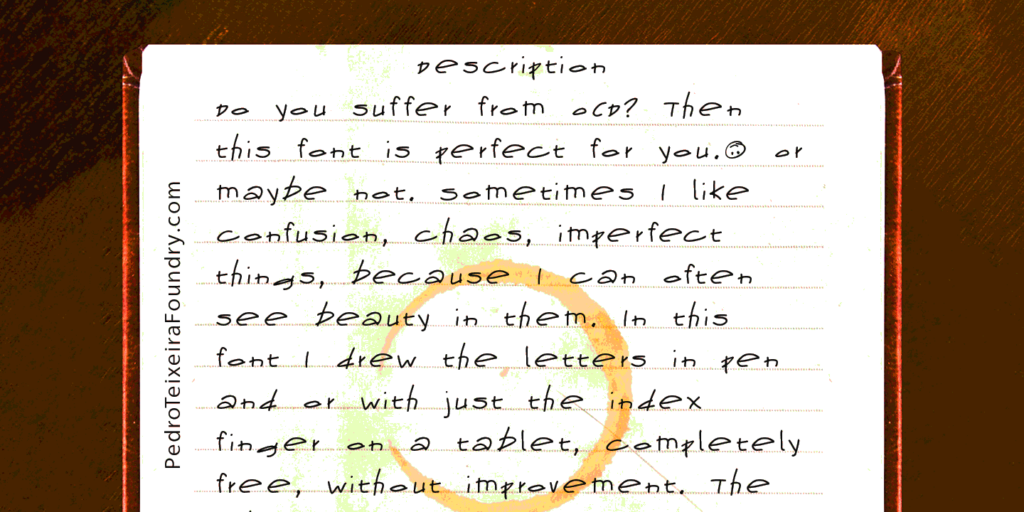 Description
Do you suffer from OCD? Then
this font is perfect for you.🙃 or
maybe not. sometimes I like
confusion, chaos, imperfect
things, because I can often
see beauty in them. In this
font I drew the letters in pen
and or with just the index
finger on a tablet, completely
free, without improvement. The
PedroTeixeiraFoundry.com